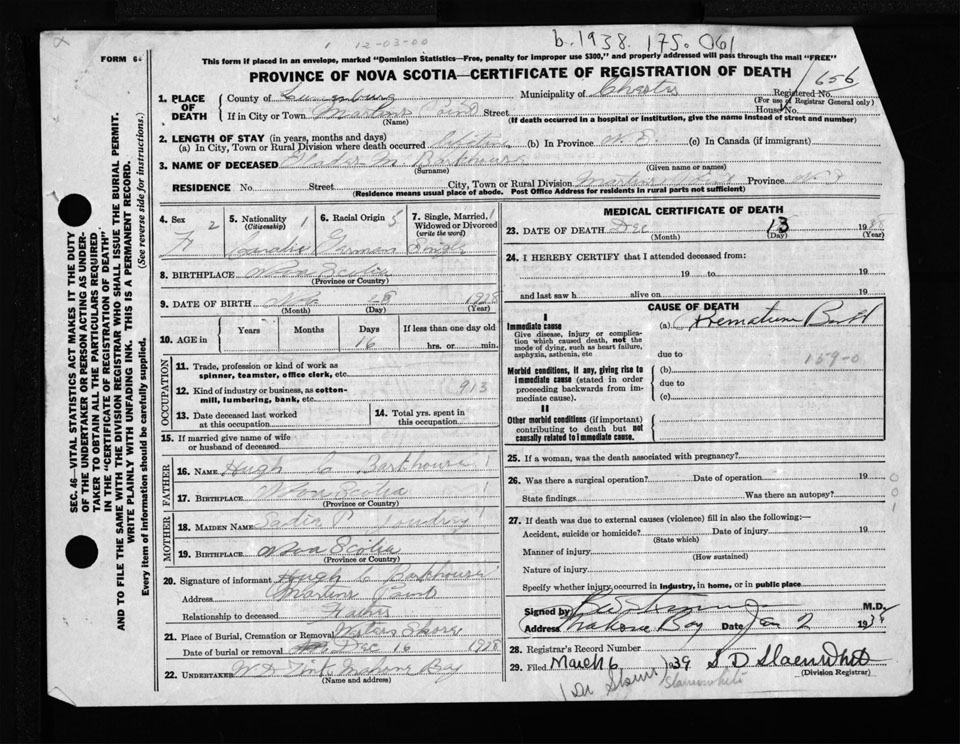 12-03-00
b. 1938. 175. 061
FORM 6
This form if placed in an envelope, marked "Dominion Statistics—Free, penalty for improper use $300," and properly addressed will pass through the mail "FREE"
PROVINCE OF NOVA SCOTIA—CERTIFICATE OF REGISTRATION OF DEATH
656
1. PLACE OF DEATH
County of Lunenburg Municipality of Chester Registered No.
(For use of Registrar General only)
If in City or Town Martins Point Street House No.
(Name) (If death occurred in a hospital or institution, give the name instead of street and number)
2. LENGTH OF STAY (in years, months and days)
(a) In City, Town or Rural Division where death occurred (b) In Province (c) In Canada (if immigrant)
3. NAME OF DECEASED Barkhouse
(Surname) (Given name or names)
RESIDENCE No. Street City, Town or Rural Division Martins Point Province
(Residence means usual place of abode. Post Office Address for residents in rural parts not sufficient)
SEC. 46—VITAL STATISTICS ACT MAKES IT THE DUTY
OF THE UNDERTAKER OR PERSON ACTING AS UNDER-
TAKER TO OBTAIN ALL THE PARTICULARS REQUIRED
IN THE "CERTIFICATE OF REGISTRATION OF DEATH"
AND TO FILE THE SAME WITH THE DIVISION REGISTRAR WHO SHALL ISSUE THE BURIAL PERMIT.
WRITE PLAINLY WITH UNFADING INK. THIS IS A PERMANENT RECORD.
Every item of information should be carefully supplied. (See reverse side for instructions.)
4. Sex F 2
5. Nationality (Citizenship) 1
6. Racial Origin 5 German
7. Single, Married, Widowed or Divorced (write the word) 1 Single
8. BIRTHPLACE Nova Scotia
(Province or Country)
9. DATE OF BIRTH
(Month) (Day) (Year)
10. AGE in Years Months Days 16 If less than one day old hrs. or min.
OCCUPATION
11. Trade, profession or kind of work as spinner, teamster, office clerk, etc.
12. Kind of industry or business, as cotton-mill, lumbering, bank, etc. 913
13. Date deceased last worked at this occupation
14. Total yrs. spent in this occupation
15. If married give name of wife or husband of deceased
FATHER
16. NAME Hugh C Barkhouse
17. BIRTHPLACE Nova Scotia
(Province or Country)
MOTHER
18. MAIDEN NAME Sadie
19. BIRTHPLACE Nova Scotia
(Province or Country)
20. Signature of informant Hugh C Barkhouse
Address Martins Point
Relationship to deceased Father
21. Place of Burial, Cremation or Removal Shore
Date of burial or removal Dec 16
22. UNDERTAKER Mahone Bay
(Name and address)
MEDICAL CERTIFICATE OF DEATH
23. DATE OF DEATH Dec 13 1938
(Month) (Day) (Year)
24. I HEREBY CERTIFY that I attended deceased from:
19 to 19
and last saw h alive on 19
CAUSE OF DEATH
I
Immediate cause (a) Premature Birth
Give disease, injury or complication which caused death, not the mode of dying, such as heart failure, asphyxia, asthenia, etc
due to 159-0
Morbid conditions, if any, giving rise to immediate cause (stated in order proceeding backwards from immediate cause).
(b)
due to
(c)
II
Other morbid conditions (if important) contributing to death but not causally related to immediate cause.
25. If a woman, was the death associated with pregnancy?
26. Was there a surgical operation? Date of operation 19
State findings Was there an autopsy?
001
27. If death was due to external causes (violence) fill in also the following:—
Accident, suicide or homicide? Date of injury 19
(State which)
Manner of injury
(How sustained)
Nature of injury
Specify whether injury occurred in industry, in home, or in public place
Signed by M.D.
Address Mahone Bay Date Jan 2 193
28. Registrar's Record Number
29. Filed March 6 1939 S D Slaenwhite
(Division Registrar)
Slaunwhite